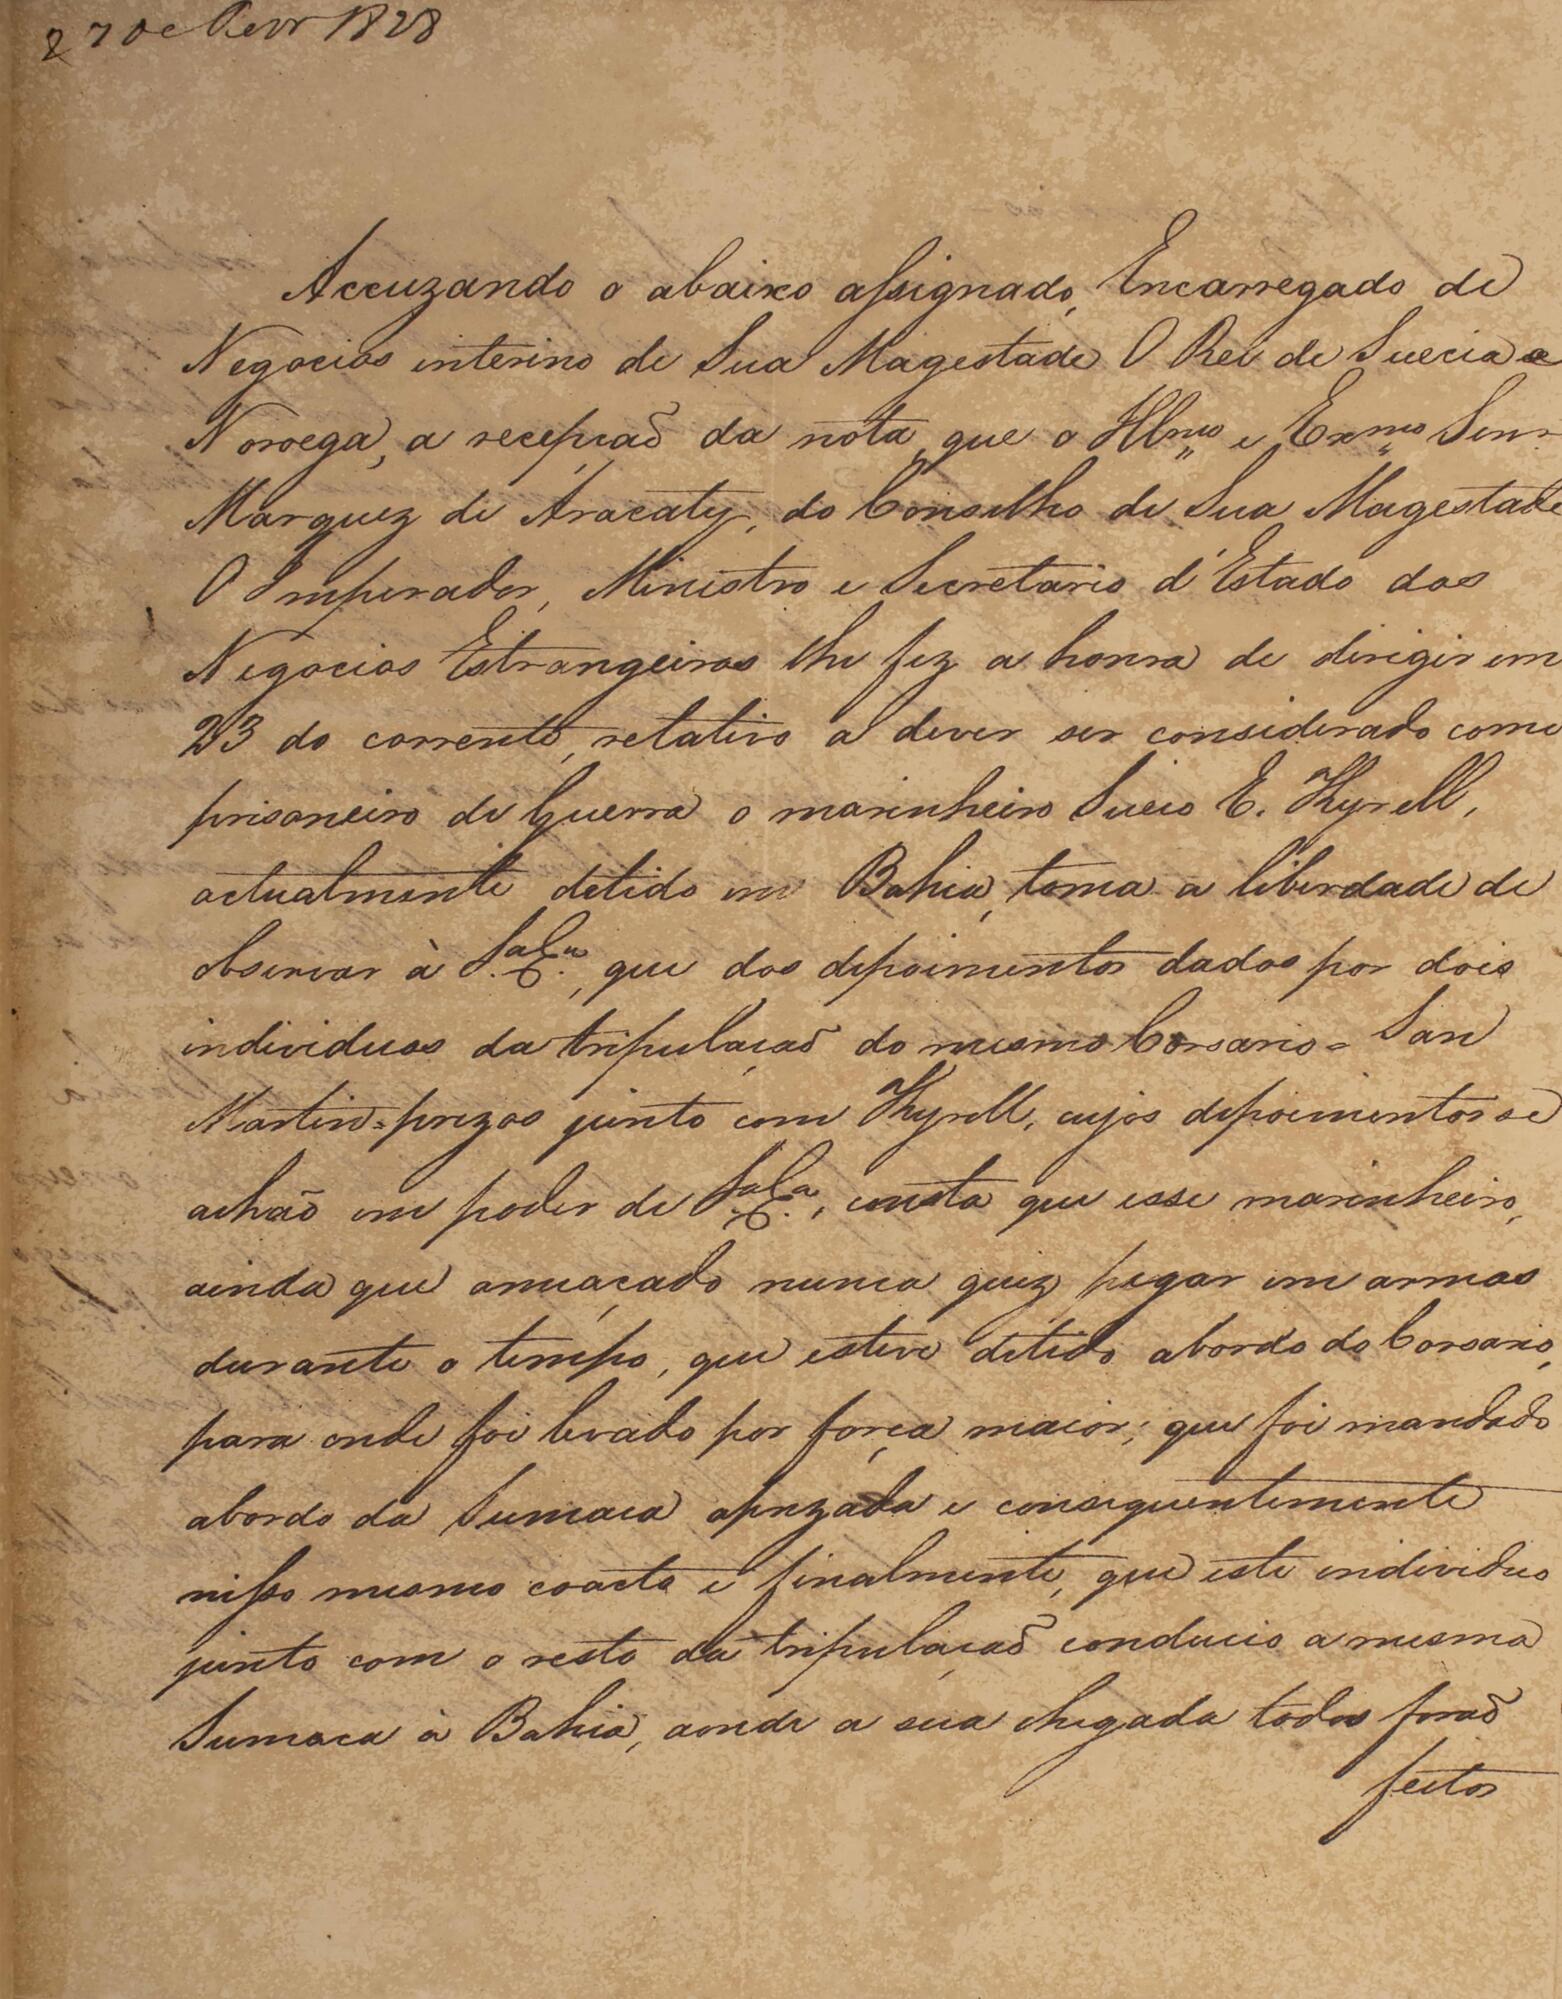 27 de Fevr 1828
Accuzando o abaixo assignado, Encarregado de
Negocios interino de Sua Magestade O Rei de Suecia e
Noroega, a recepçaõ da nota, que o Illmo e Exmo Senr
Marquez de Aracaty, do Conselho de Sua Magestade
O Imperador, Ministro e Secretario d'Estado dos
Negocios Estrangeiros lhe fez a honra de dirigir em
23 do corrente, relativo a dever ser considerado como
prisoneiro de Guerra o marinheiro Sueio E. Thyrell,
actualmente detido em Bahia, toma a liberdade de
observar à S.a E.a, que dos depoimentos dados por dois
individuos da tripulaçaõ do mesmo Corsario = San
Martin = prezos junto com Thyrell, cujos depoimentos se
achaõ em poder de S.a E.a, consta que esse marinheiro,
ainda que ameaçado nunca quiz pegar em armas
durante o tempo, que esteve detido abordo do Corsario,
para onde foi levado por força maior; que foi mandado
abordo da Sumaca aprezada e consequentemente
nisso mesmo coacto e finalmente, que este individuo
junto com o resto da tripulaçaõ conducio a mesma
Sumaca à Bahia, aonde a sua chegada todos foraõ
feitos